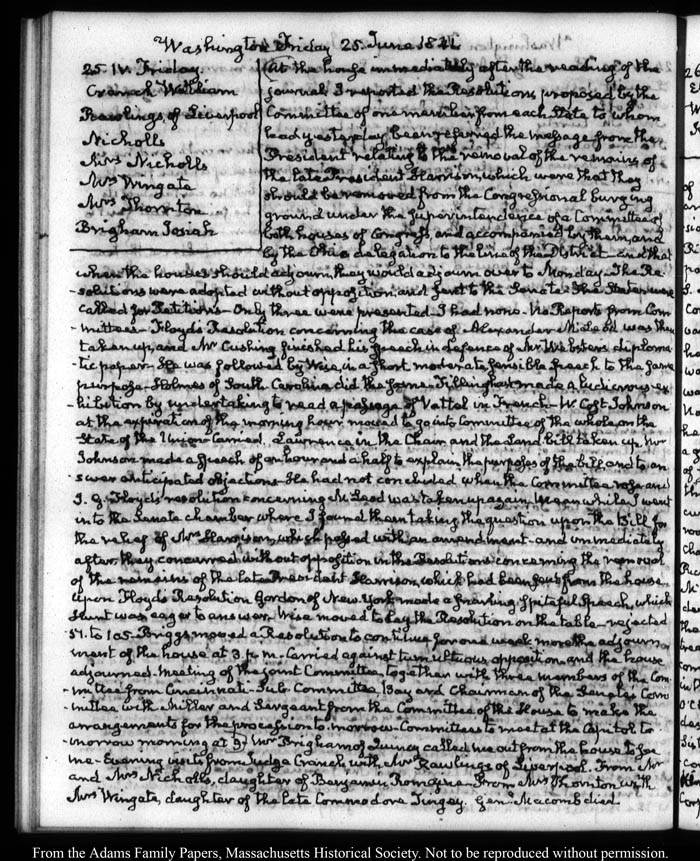 Washington Friday 25. June 1841.
25. IV. Friday.
Cranch William
Rawlings of Liverpool
Nicholls
Mrs Nicholls
Mrs Wingate
Mrs Thornton
Brigham Josiah
At the house immediately after the reading of the
journal I reported the Resolutions proposed by the
Committee of one member from each State to whom
had yesterday been referred the message from the
President relating to the removal of the remains of
the late President Harrison, which were that they
should be removed from the Congressional burying
ground under the Superintendence of a Committee of
both houses of Congress, and accompanied by them, and
by the Ohio delegation to the line of the District— and that
when the houses should adjourn, they would adjourn over to Monday. The Re-
-solutions were adopted without opposition, and sent to the Senate. The States were
called for Petitions— Only three were presented. I had none. No Reports from Com-
-mittees— Floyd's Resolution concerning the case of Alexander McLeod was then
taken up, and Mr Cushing finished his Speech in defence of Mr Webster's diploma-
-tic paper. He was followed by Wise, in a short moderate sensible speech to the same
purpose— Holmes of South Carolina did the same. Tillinghast made a ludicrous ex-
-hibition by undertaking to read a passage of Vattel in French— W. Cost Johnson
at the expiration of the morning hour moved to go into Committee of the whole on the
State of the Union— Carried. Lawrence in the Chair and the Land bill taken up. Wm
Johnson made a speech of an hour and a half to explain the purposes of the bill and to an-
-swer anticipated objections— He had not concluded when the Committee rose and
J. G. Floyd's resolution concerning McLeod was taken up again. Meanwhile I went
into the Senate chamber where I found them taking the question upon the Bill for
the relief of Mrs Harrison, which passed with an amendment— and immediately
after, they concurred without opposition in the Resolutions concerning the removal
of the remains of the late President Harrison, which had been sent from the house.
Upon Floyd's Resolution Gordon of New York made a snarling spiteful speech, which
Hunt was eager to answer. Wise moved to lay the Resolution on the table— rejected
57. to 105. Briggs moved a Resolution to continue for one week more the adjourn-
ment of the house at 3. p.m. Carried against tumultuous opposition, and the house
adjourned. Meeting of the joint Committee, together with three members of the Com-
-mittee from Cincinnati— Sub-Committee, Bayard Chairman of the Senate's Com-
-mittee with Miller and Sergeant from the Committee of the House to make the
arrangements for the procession to-morrow— Committees to meet at the Capitol to-
-morrow morning at 9. Mr Brigham of Quincy called me out from the house to see
me— Evening visits from Judge Cranch with Mrs Rawlings of Liverpool. From Mr
and Mrs Nicholls, daughter of Benjamin Romaine. From Mrs Thornton with
Mrs Wingate, daughter of the late Commodore Tingey. Genl Macomb died.
From the Adams Family Papers, Massachusetts Historical Society. Not to be reproduced without permission.